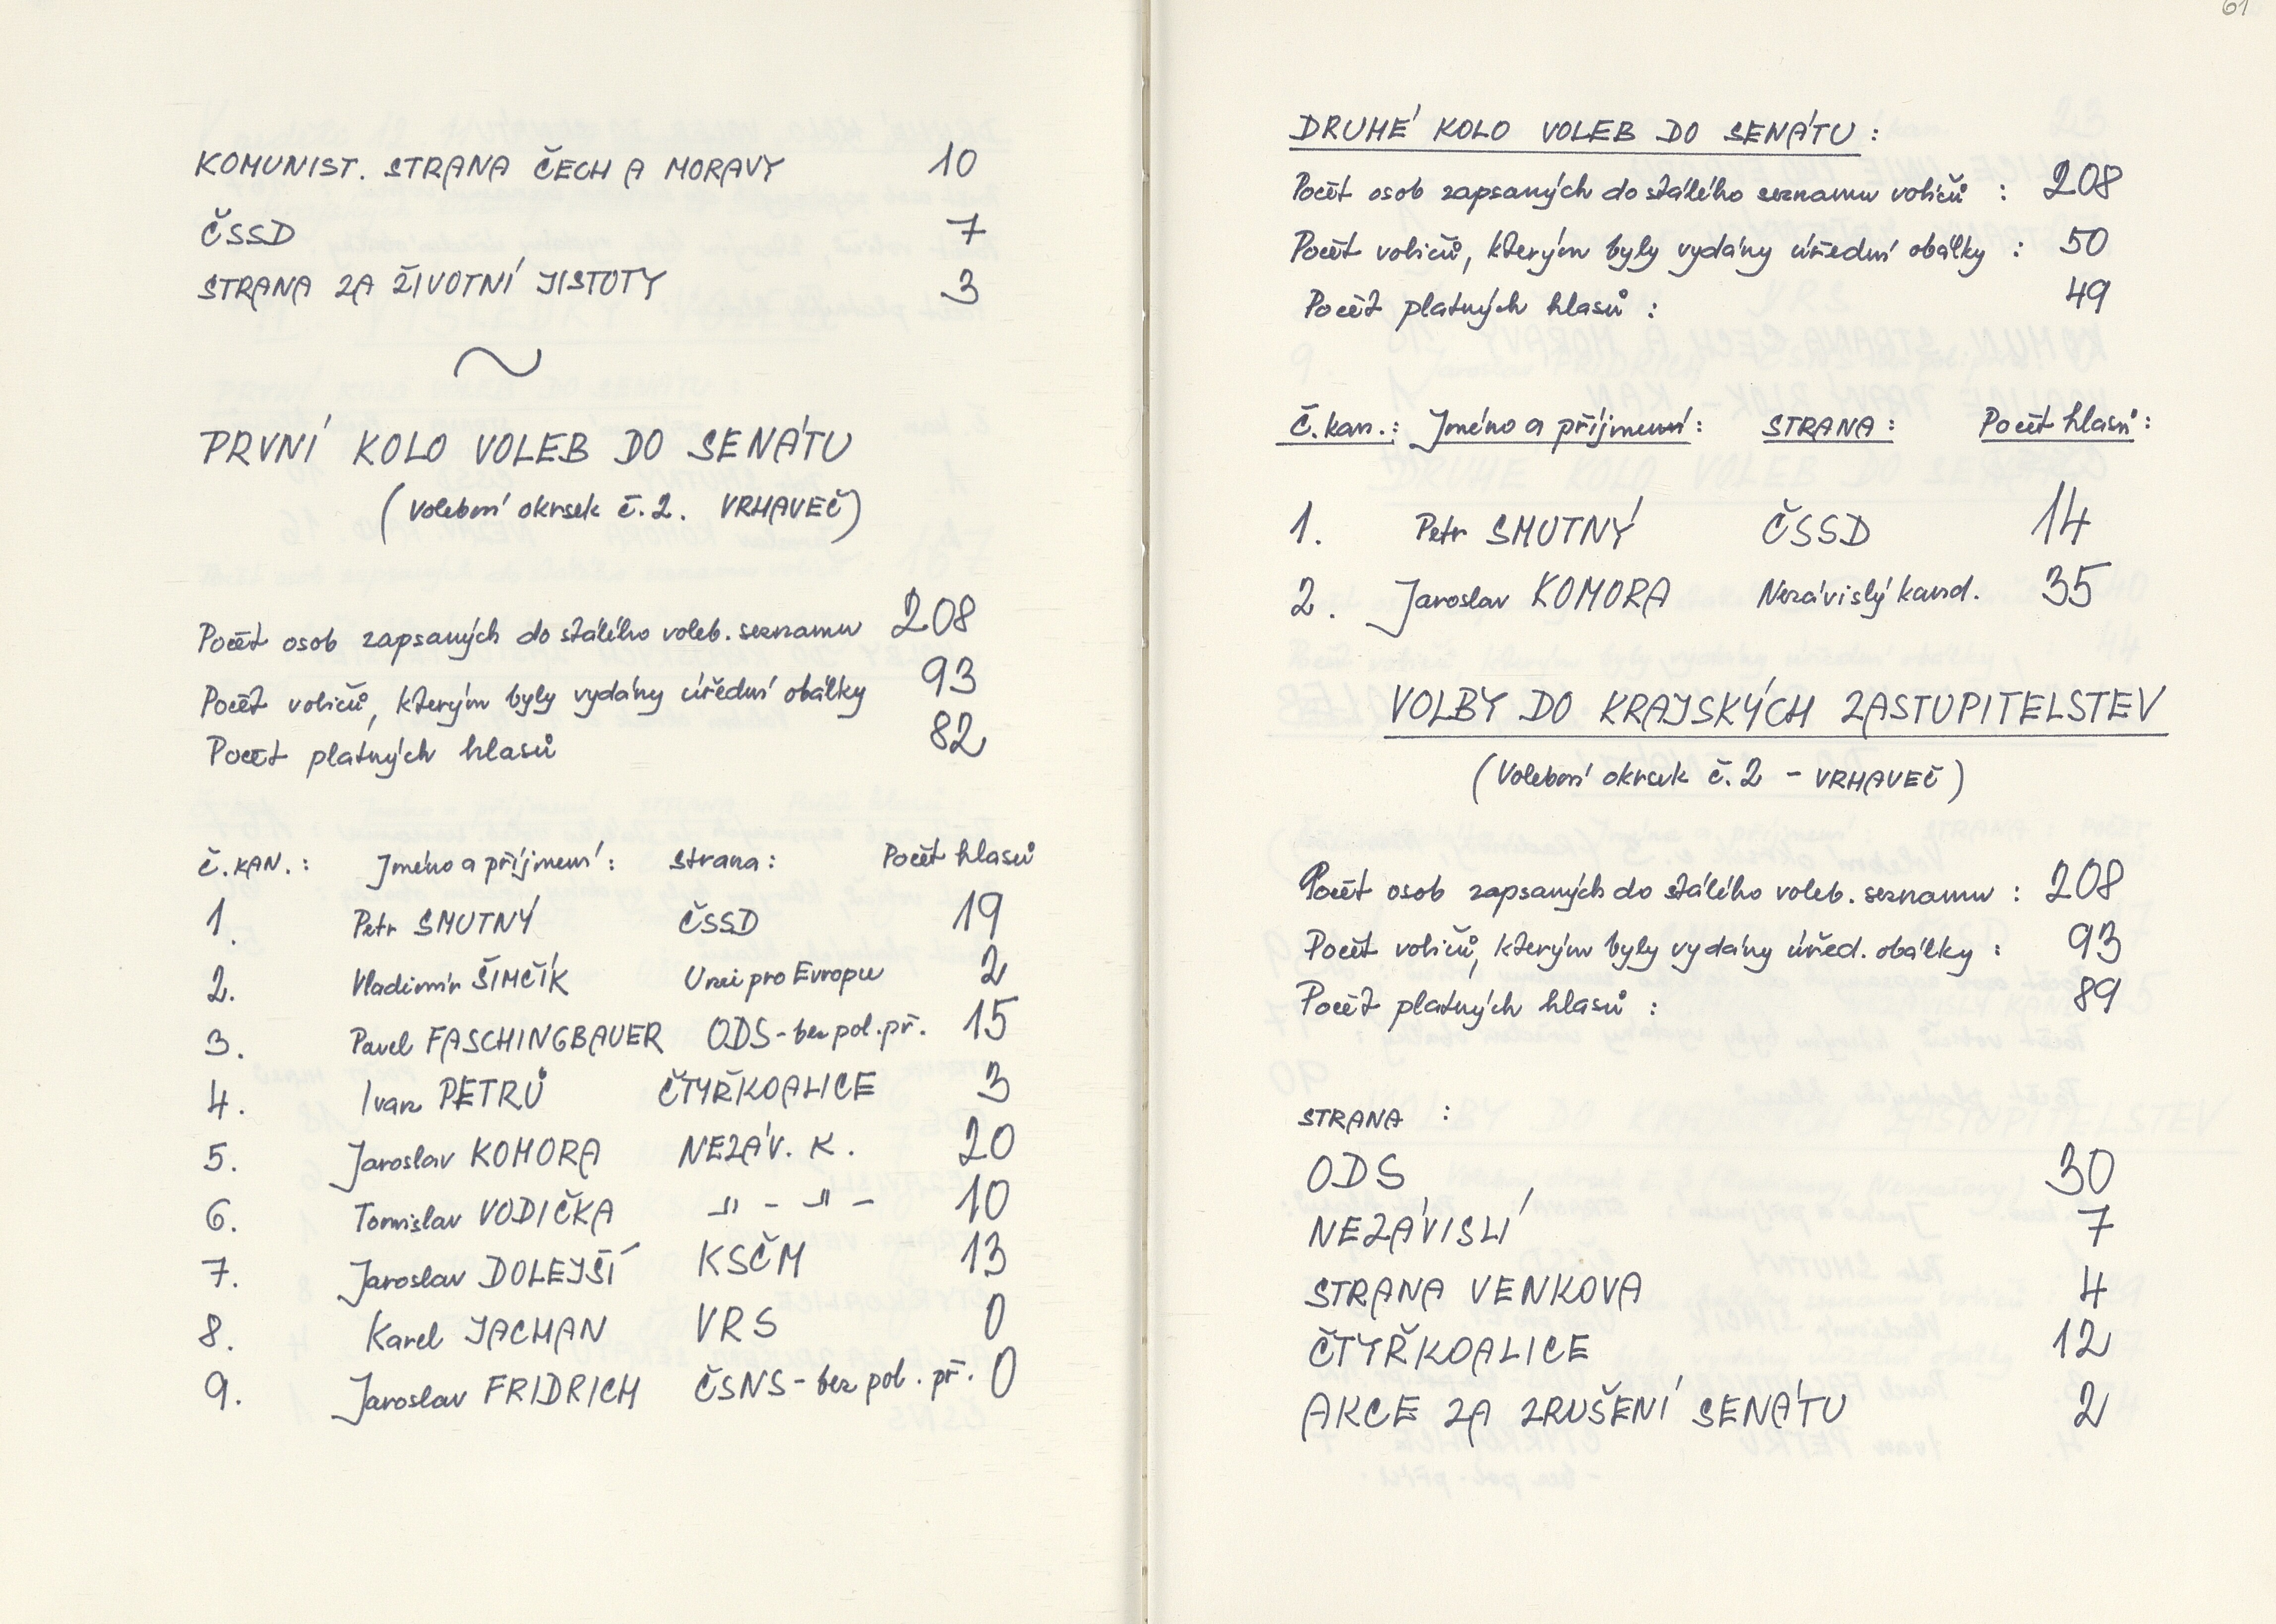 KOMUNIST. STRANA ČECH A MORAVY 10
ČSSD 7
STRANA ZA ŽIVOTNÍ JISTOTY 3
PRVNÍ KOLO VOLEB DO SENÁTU
(Volební okrsek č.2. VRHAVEČ)
Počet osob zapsaných do stálého voleb. seznamu 208
Počet voličů, kterým byly vydány úřední obálky 93
Počet platných hlasů 82
Č.KAN.: Jméno a příjmení: Strana: Počet hlasů
1. Petr SMUTNÝ ČSSD 19
2. Vladimír ŠIMČÍK Unei pro Evropu 2
3. Pavel FASCHINGBAUER ODS - bez pol. př. 15
4. Ivan PETRŮ ČTYŘKOALICE 3
5. Jaroslav KOMORA NEZÁV. K. 20
6. Tomislav VODIČKA -"- -"- 10
7. Jaroslav DOLEJŠÍ KSČM 13
8. Karel JACMAN VRS 0
9. Jaroslav FRIDRICH ČSNS - bez pol. př. 0
61
DRUHÉ KOLO VOLEB DO SENÁTU:
Počet osob zapsaných do stálého seznamu voličů : 208
Počet voličů, kterým byly vydány úřední obálky : 50
Počet platných hlasů : 49
Č.kan.: Jméno a příjmení: STRANA: Počet hlasů:
1. Petr SMUTNÝ ČSSD 14
2. Jaroslav KOMORA Nezávislý kand. 35
VOLBY DO KRAJSKÝCH ZASTUPITELSTEV
(Volební okrsek č.2 - VRHAVEČ)
Počet osob zapsaných do stálého voleb. seznamu : 208
Počet voličů, kterým byly vydány úřed. obálky : 93
Počet platných hlasů : 89
STRANA :
ODS 30
NEZÁVISLÍ 7
STRANA VENKOVA 4
ČTYŘKOALICE 12
AKCE ZA ZRUŠENÍ SENÁTU 2